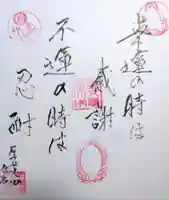 幸運の時は
感謝
不運の時は
忍耐